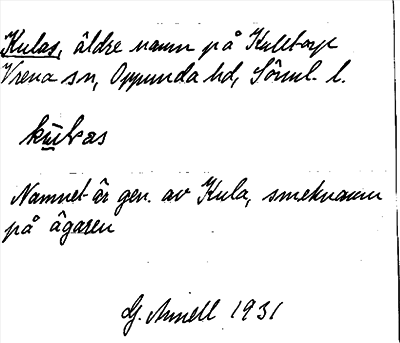 Kulas, äldre namn på Kulltorp
Vrena sn, Oppunda hd, Söml. l.
kulas
Namnet är gen. av Kula, smeknamn
på ägaren
G. Arnell 1931